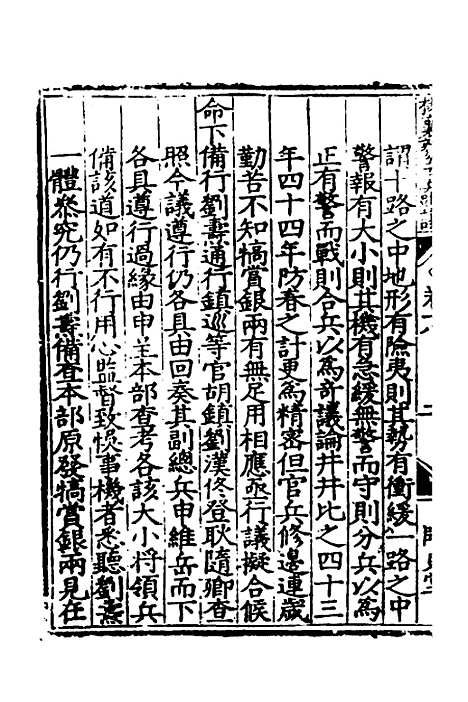 謂十路之中地形有險夷則其勢有衝緩一路之中
警報有大小則其機有急緩無警而守則分兵以為
正有警而戰則合兵以為奇議論井井比之四十三
年四十四年防春之計更為精密但官兵修邊連歲
勤苦不知犒賞銀兩有無足用相應亟行議擬合候
命下備行劉燾通行鎮巡等官胡鎮劉漢佟登耿隨卿查
照今議遵行仍各具由回奏其副總兵申維岳而下
各具遵行過緣由申呈本部查考各該大小將領兵
備該道如有不行用心監督致悞事機者悉聽劉燾
一體叅究仍行劉燾備查本部原發犒賞銀兩見在